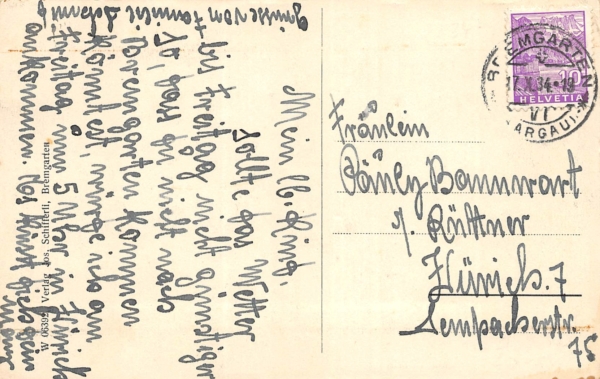 Mein lb. Kind.
Sollte das Wetter
bis Freitag nicht günstiger
so, dass du nicht nach
Bremgarten kommen
könntest, würde ich am
Freitag um 5 Uhr in Zürich
ankommen.
Grüsse von Familie
W 06392 Verlag Jos. Schifferli, Bremgarten
BREMGARTEN
17.X.34-19
VI
(AARGAU)
10
HELVETIA
Fräulein
Pauly Bannwart
Rüttner
Zürich. 7
Sempacherstr.
75